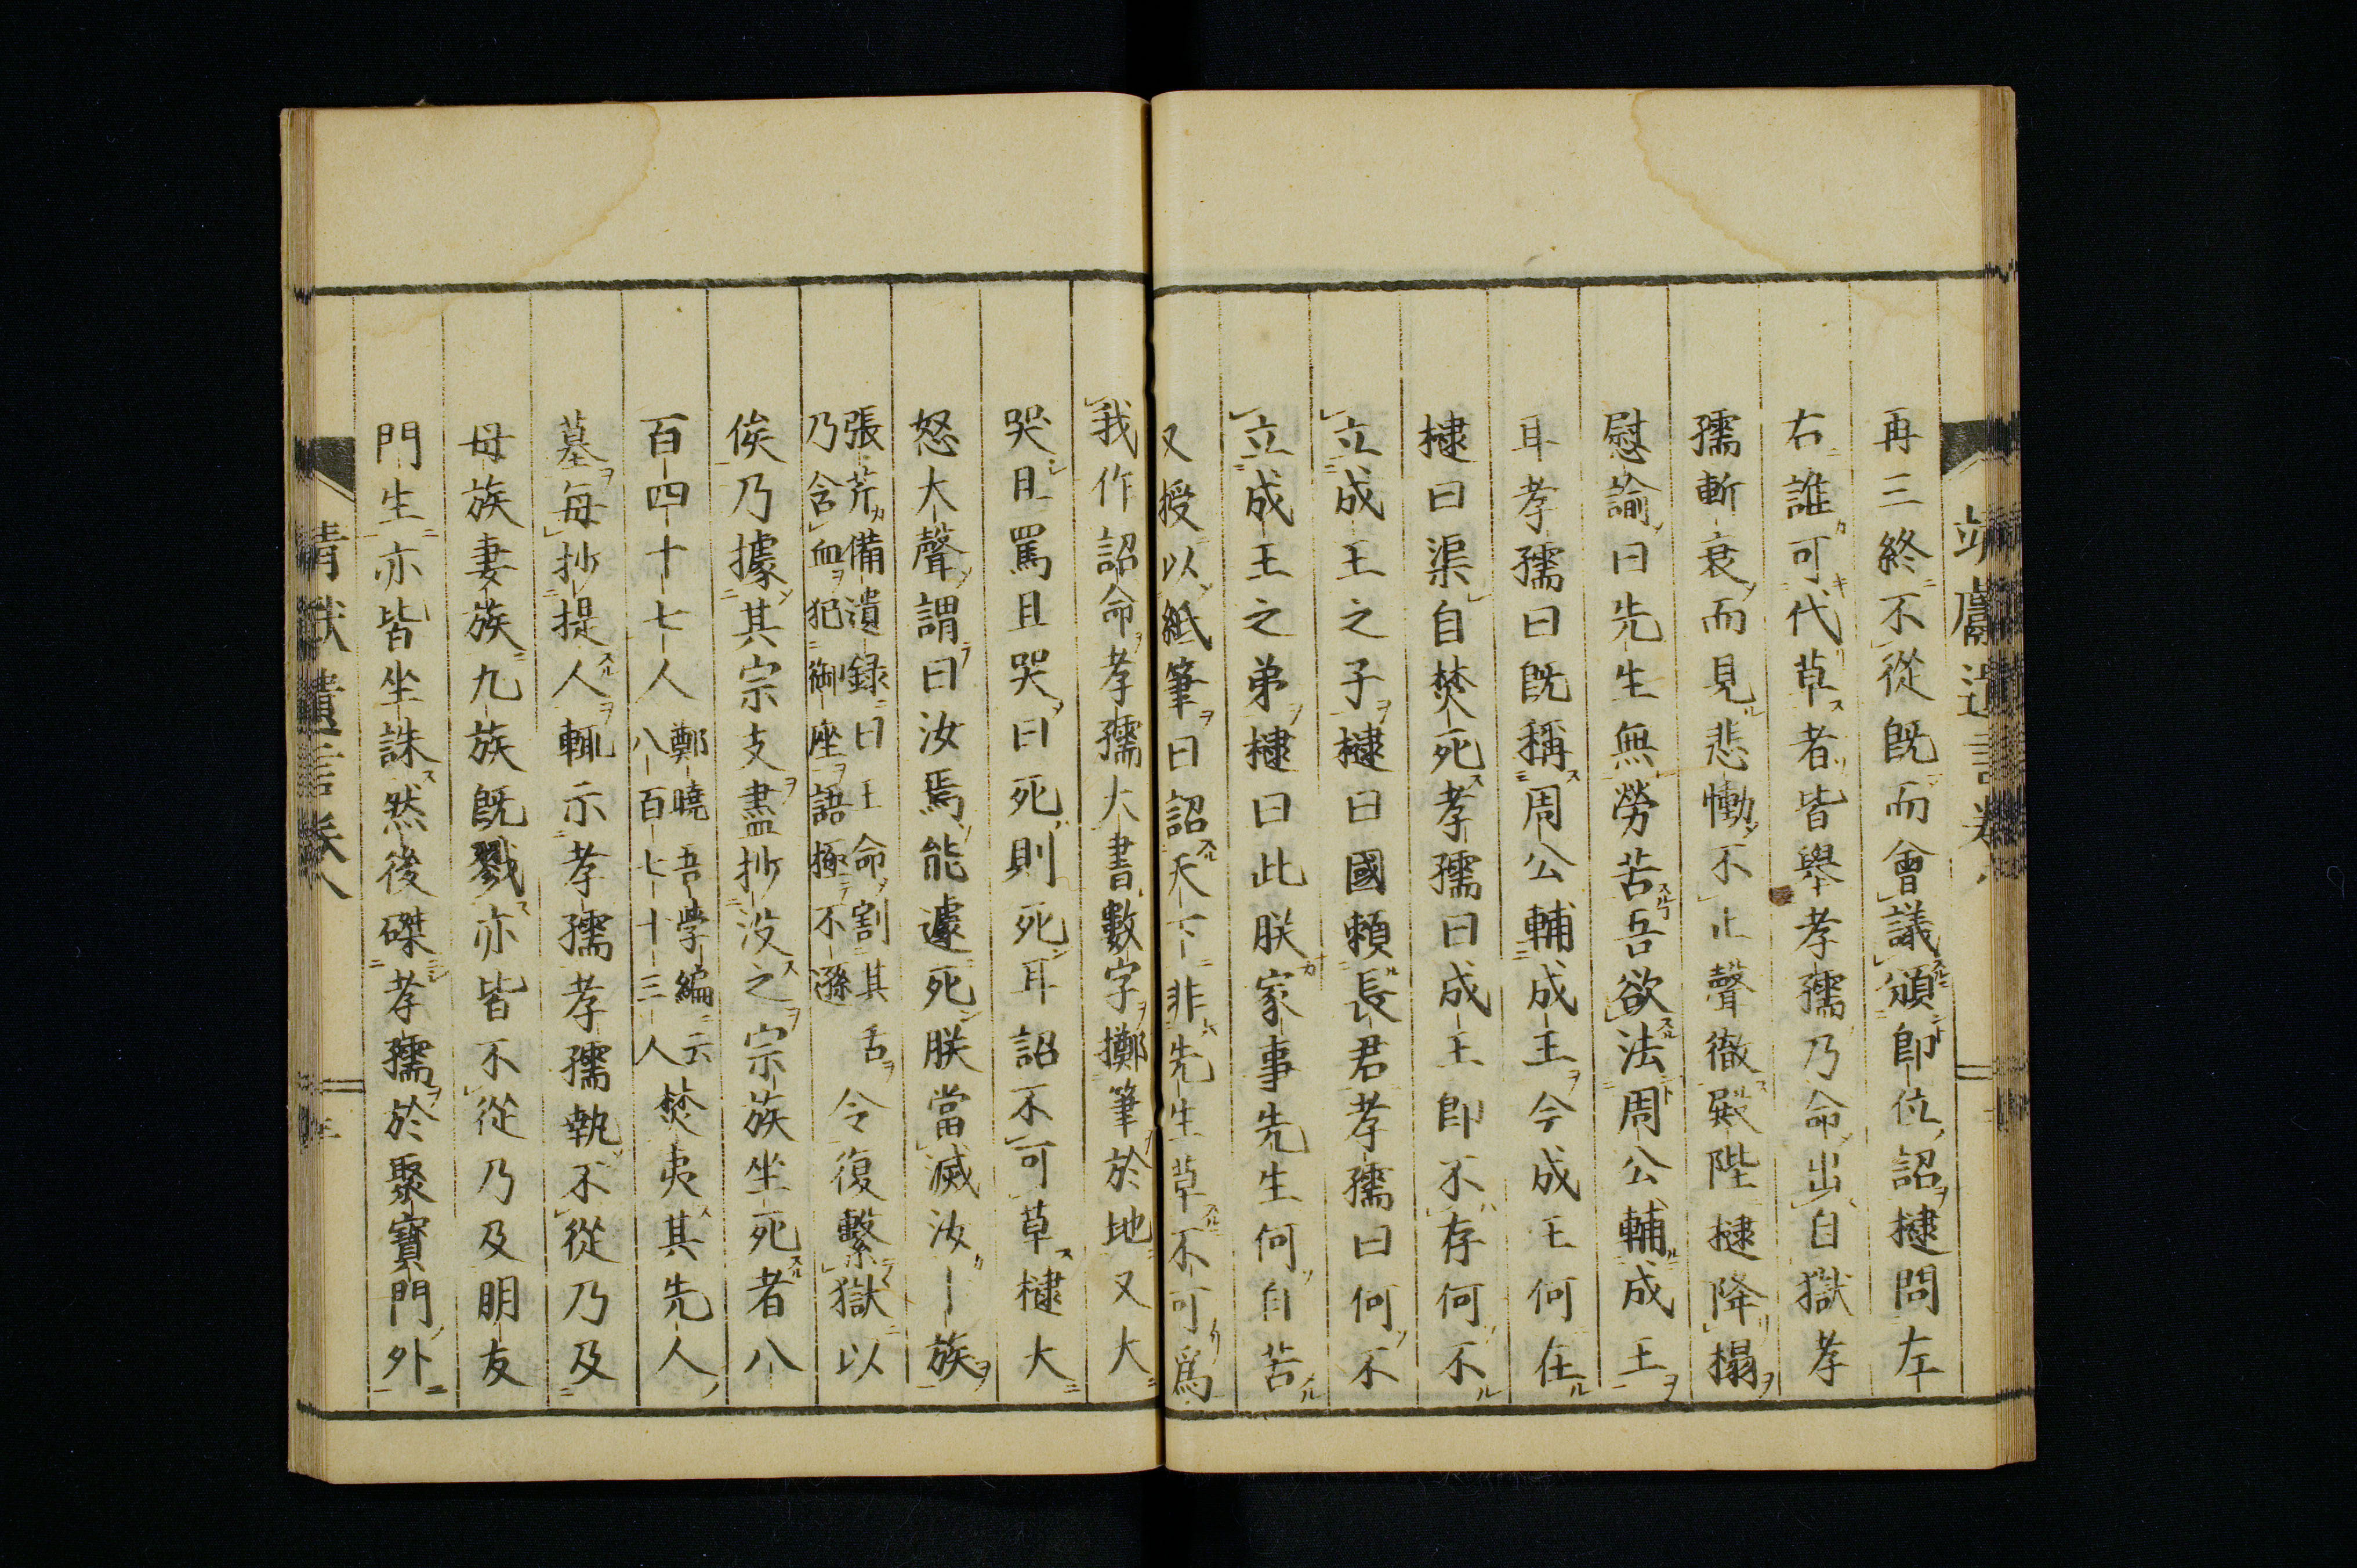 再三終不從既而會議頒即位詔棣問左
右誰可代草者皆舉孝孺乃命出自獄孝
孺斬衰而見悲慟不止聲徹殿陛棣降榻
慰諭曰先生無勞苦吾欲法周公輔成王
耳孝孺曰既稱周公輔成王今成王何在
棣曰渠自焚死孝孺曰成王即不存何不
立成王之子棣曰國賴長君孝孺曰何不
立成王之弟棣曰此朕家事先生何自苦
又授以紙筆曰詔天下非先生草不可爲
我作詔命孝孺大書數字擲筆於地又大
哭且罵且哭曰死則死耳詔不可草棣大
怒大聲謂曰汝焉能遽死朕當滅汝一族
張芹備遺録曰王命割其舌
乃含血犯御座語極不遜
令復繫獄以
俟乃據其宗支盡抄没之宗族坐死者八
百四十七人
鄭曉吾學編云
八百七十三人
焚夷其先人
墓每抄提人輙示孝孺孝孺執不從乃及
母族妻族九族既戮亦皆不從乃及朋友
門生亦皆坐誅然後磔孝孺於聚寶門外
靖獻遺言卷八